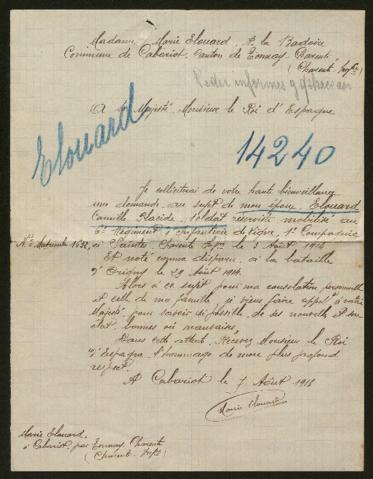 Madame Marie Elouard, A la Badoire
Commune de Cabariot, Canton de Tonnay-Charente
(Charente Infre)
Pedir informes y
A sa Majesté, Monsieur le Roi d'Espagne
Elouard
14240
Je solliciterai de votre haute bienveillance
une demande au sujet de mon époux Elouard
Camille Placide, soldat réserviste mobilisé au
6e Régiment d'infanterie de ligne, 1e Compagnie
No Matricule 1632, à Saintes Charente Infre le 3 Août 1914
Et noté comme disparu, à la bataille
d'Origny le 29 Août 1914.
Alors à ce sujet pour ma consolation personnelle
et celle de ma famille je viens faire appel à votre
Majesté pour savoir si possible, de ses nouvelles
soit bonnes ou mauvaises,
Dans cette attente, Recevez Monsieur le Roi
d'Espagne l'hommage de mon plus profond
respect.
A Cabariot le 7 Août 1915
Marie Elouard
Marie Elouard.
à Cabariot par Tonnay Charente
(Charente Infre)